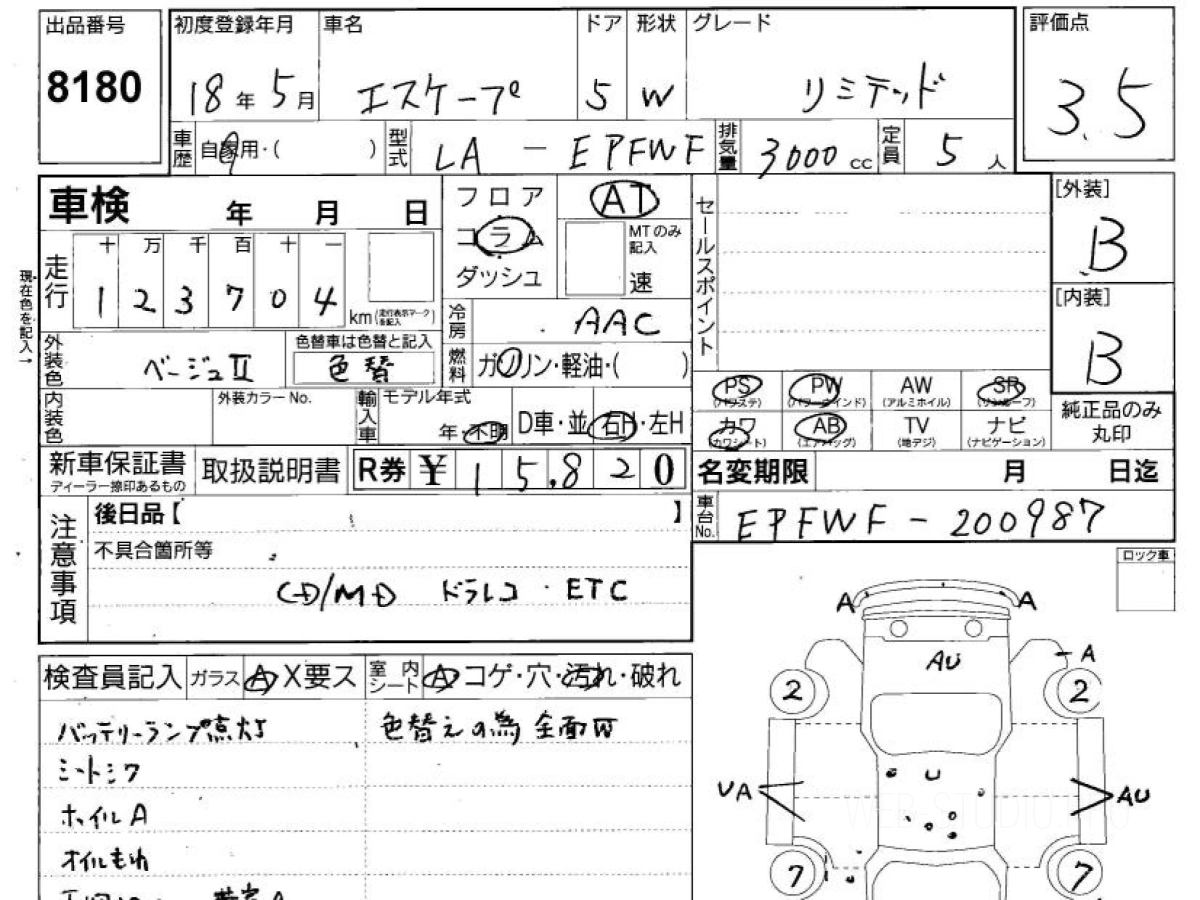 出品番号
8180
初度登録年月
18年5月
車名
エスケープ
ドア
5
形状
W
グレード
リミテッド
評価点
3.5
車歴
自家用・( )
型式
LA - EPFWF
排気量
3000 cc
定員
5人
車検 年 月 日
フロア
コラム
ダッシュ
AT
MTのみ記入
速
セールスポイント
[外装]
B
[内装]
B
現在色を記入→
走行
十 万 千 百 十 一
1 2 3 7 0 4
km (走行表示マークを記入)
冷房
AAC
外装色
ベージュⅡ
色替車は色替と記入
色替
燃料
ガソリン・軽油・( )
PS (パワステ)
PW (パワーウインド)
AW (アルミホイル)
SR (サンルーフ)
カワ (カワシート)
AB (エアバッグ)
TV (地デジ)
ナビ (ナビゲーション)
純正品のみ丸印
内装色
外装カラーNo.
輸入車
モデル年式
年・不明
D車・並
右H・左H
新車保証書
ディーラー捺印あるもの
取扱説明書
R券 ¥ 15,820
名変期限 月 日迄
車台No.
EPFWF - 200987
注意事項
後日品【 】
不具合箇所等
CD/MD ドラレコ・ETC
ロック車
検査員記入
ガラス A X要ス
室内シート A コゲ・穴・汚れ・破れ
バッテリーランプ点灯
色替えの為 全面W
シートシワ
ホイルA
オイルもれ
A A
AU
A
2 2
U
UA AU
7 7
WEB STUDIO PRO